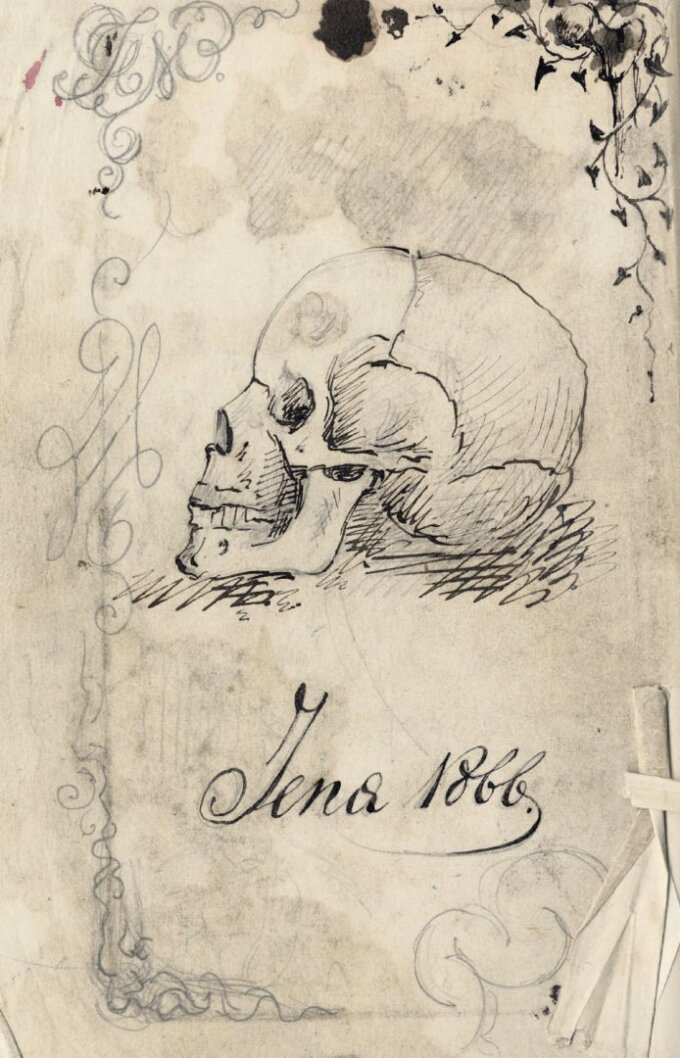 Jena 1866.